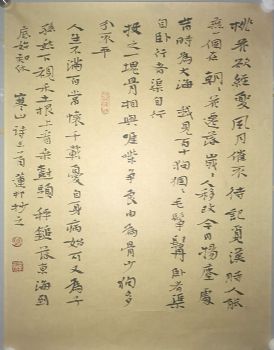 桃花欲經夏風月催不待訪覓漢時人能
無一個在朝朝花遷落歲歲人移改今日揚塵處
昔時為大海 我見百十狗個個毛鬇鬡卧者渠
自卧行者渠自行
投之一塊骨相與啀喍爭良由為骨少狗多
分不平
人生不滿百常懷千載憂自身病始可又為子
孫愁下視禾根土上看桑樹頭秤錘落東海到
底始知休 寒山詩三首